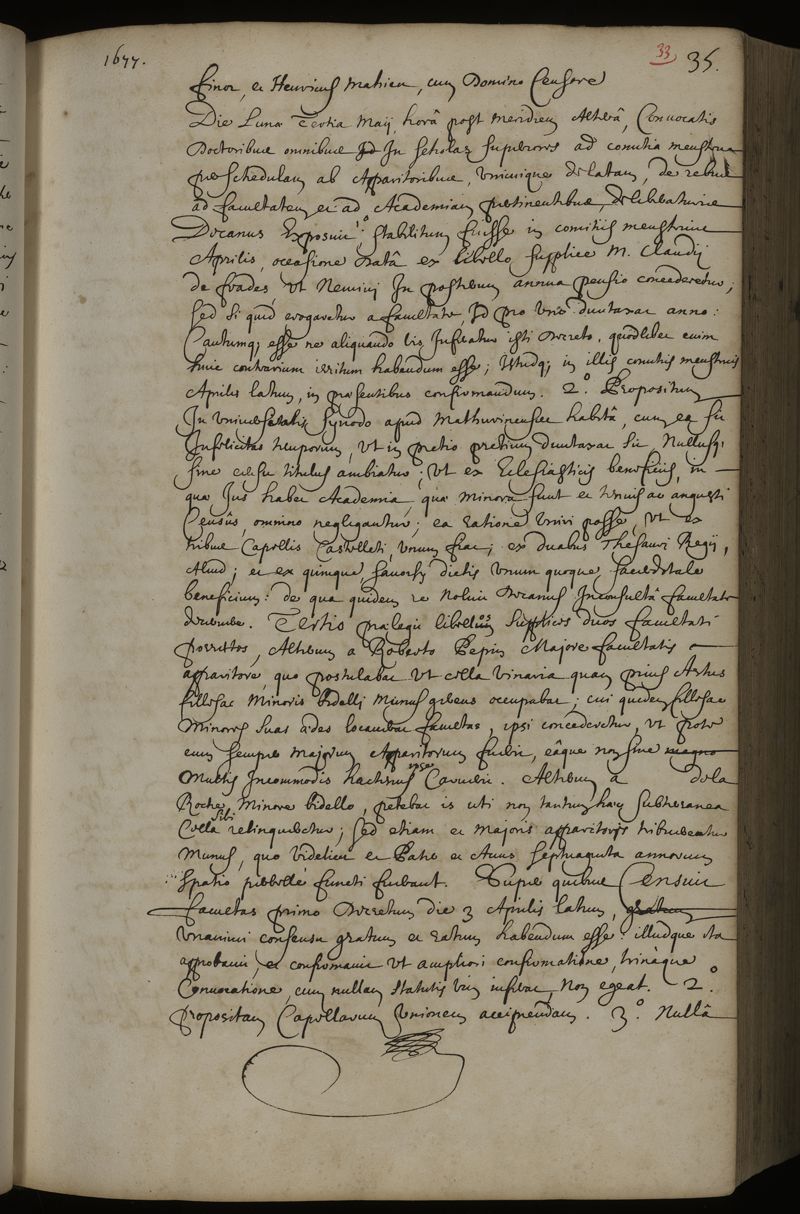 1677.
33 35.
finot, et Henricus Mahieu, cum Domino Censore
Die Lunæ Tertia Maij, horâ post meridiem Alterâ, Convocatis
Doctoribus omnibus In scholas superiores ad comitia menstrua
per schedulam ab Apparitoribus, unicuique delatam, de rebus
ad facultatem et ad Academiam pertinentibus, deliberaturis
Decanus Exposuit 1.° stabilitum fuisse in comitiis menstruis
Aprilis, occasione datâ ex libello supplice M. Claudij
de frades, ut Nemini In posterum annua pensio concederetur;
sed si quid erogaretur a facultate, Id pro uno duntaxat anno:
Cautumq; esse ne aliquando vis Inferatur isti Decreto, quodlibet enim
huic contrarium irritum habendum esse; Istudq; in illis comitiis menstruis
Aprilis latum, in præsentibus confirmandum. 2.° Propositum
In universitatis synodo apud Mathurinenses habitâ, cum ea sit
Infelicitas temporum, ut in pretio pretium duntaxat sit, Nullusq;
sine censu titulus ambiatur; ut ex Ecclesiasticis beneficiis, in
quæ Jus habet Academia, quæ minora sunt et tenuis ac angusti
Censûs, omnino negligantur; ea ratione uniri posse, ut ex
tribus Capellis Castelleti, unum fiat; ex duabus Thesauri Regij,
Aliud; et ex quinque, savoisy dictis unum quoque sacerdotale
beneficium: de qua quidem re noluit Decanus Inconsultâ facultate
decernere. Tertio prælegit libellos supplices duos facultati
porrectos, Alterum a Roberto Pepin Majore facultatis
apparitore, quo postulabat ut cella vinaria quam prius Artus
fillesac Minoris bidelli Munus gerens occupabat; cui quidem fillesac
Minores suas ædes locaverat facultas, ipsi concederetur, ut pote
cum semper majorum Apparitorum fuerit, eâque non sine magno
Multis Incommodis hactenus ipse Caruerit. Alterum a dela
Roche, Minore bidello, petebat is uti non tantum hæc subterranea
Cella sibi relinqueretur; sed etiam et majoris apparitoris tribueretur
Munus, quo videlicet et Pater et Avus septuaginta annorum
spatio functi fuerant. Super quibus Censuit
facultas primo Decretum die 3 Aprilis latum, gratum
unanimi consensu gratum et ratum habendum esse: illudque ita
approbavit, et confirmavit ut ampliori confirmatione, trinâque
Convocatione, cum nullam statutis vim inferat, Non egeat. 2.°
propositam Capellarum Unionem accipiendam. 3.° Nullâ